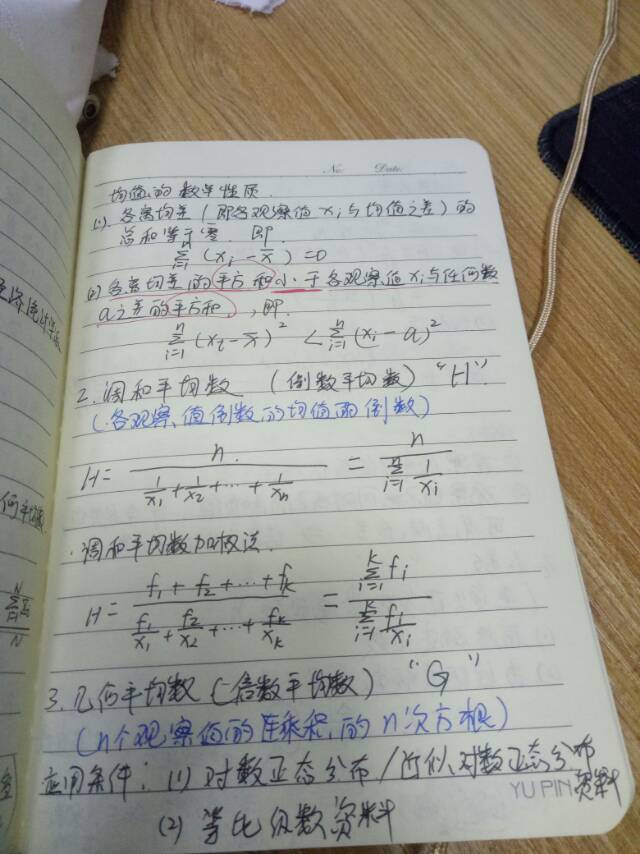 No. Date.
均值的数学性质.
(1). 各离均差(即各观察值 xᵢ 与均值之差)的
总和等于零. 即
∑ᵢ₌₁ⁿ(xᵢ - x̄) = 0
(2) 各离均差的平方和小于各观察值 xᵢ 与任何数
a之差的平方和, 即
∑ᵢ₌₁ⁿ(xᵢ - x̄)² < ∑ᵢ₌₁ⁿ(xᵢ - a)²
2. 调和平均数 (倒数平均数) "H".
(各观察值倒数的均值的倒数)
H = n / (1/x₁ + 1/x₂ + ... + 1/xₙ) = n / ∑ᵢ₌₁ⁿ 1/xᵢ
.调和平均数加权法.
H = (f₁ + f₂ + ... + fₖ) / (f₁/x₁ + f₂/x₂ + ... + fₖ/xₖ) = ∑ᵢ₌₁ᵏ fᵢ / ∑ᵢ₌₁ᵏ fᵢ/xᵢ
3. 几何平均数 (倍数平均数) "G"
(n个观察值的连乘积的n次方根)
应用条件: (1) 对数正态分布/近似对数正态分布资料
(2) 等比级数资料
YU PIN
何平均数